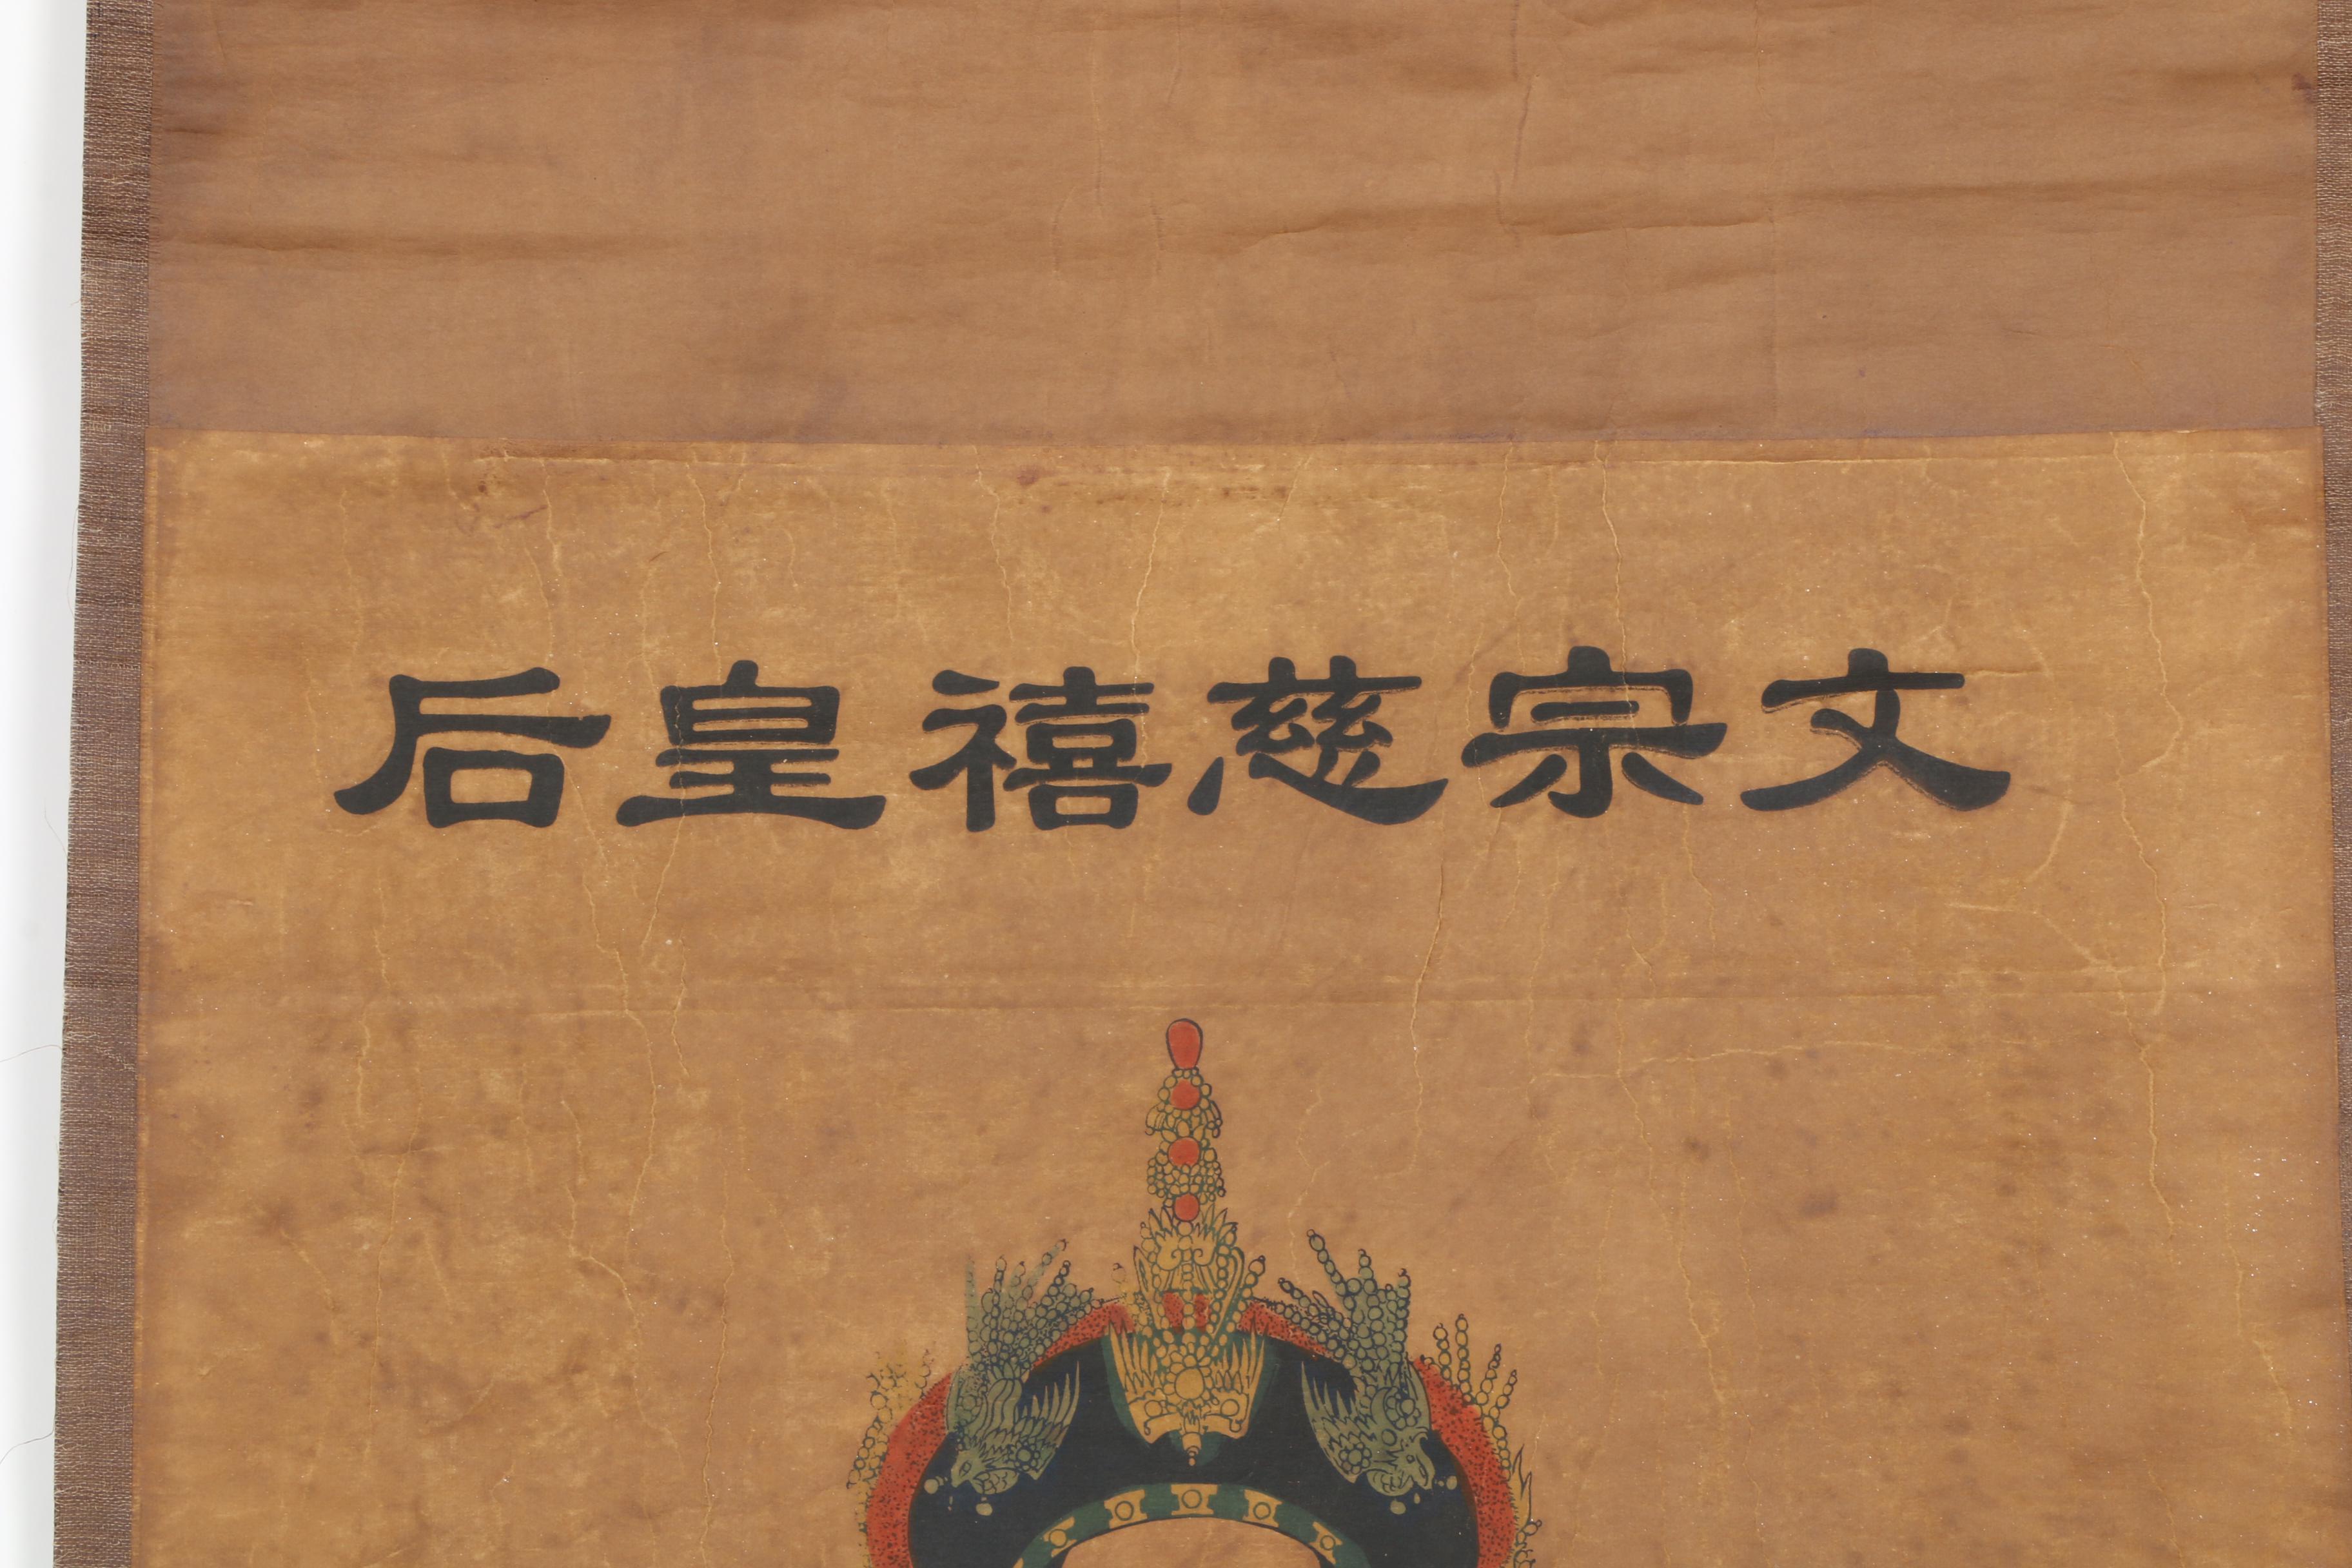 文宗慈禧皇后